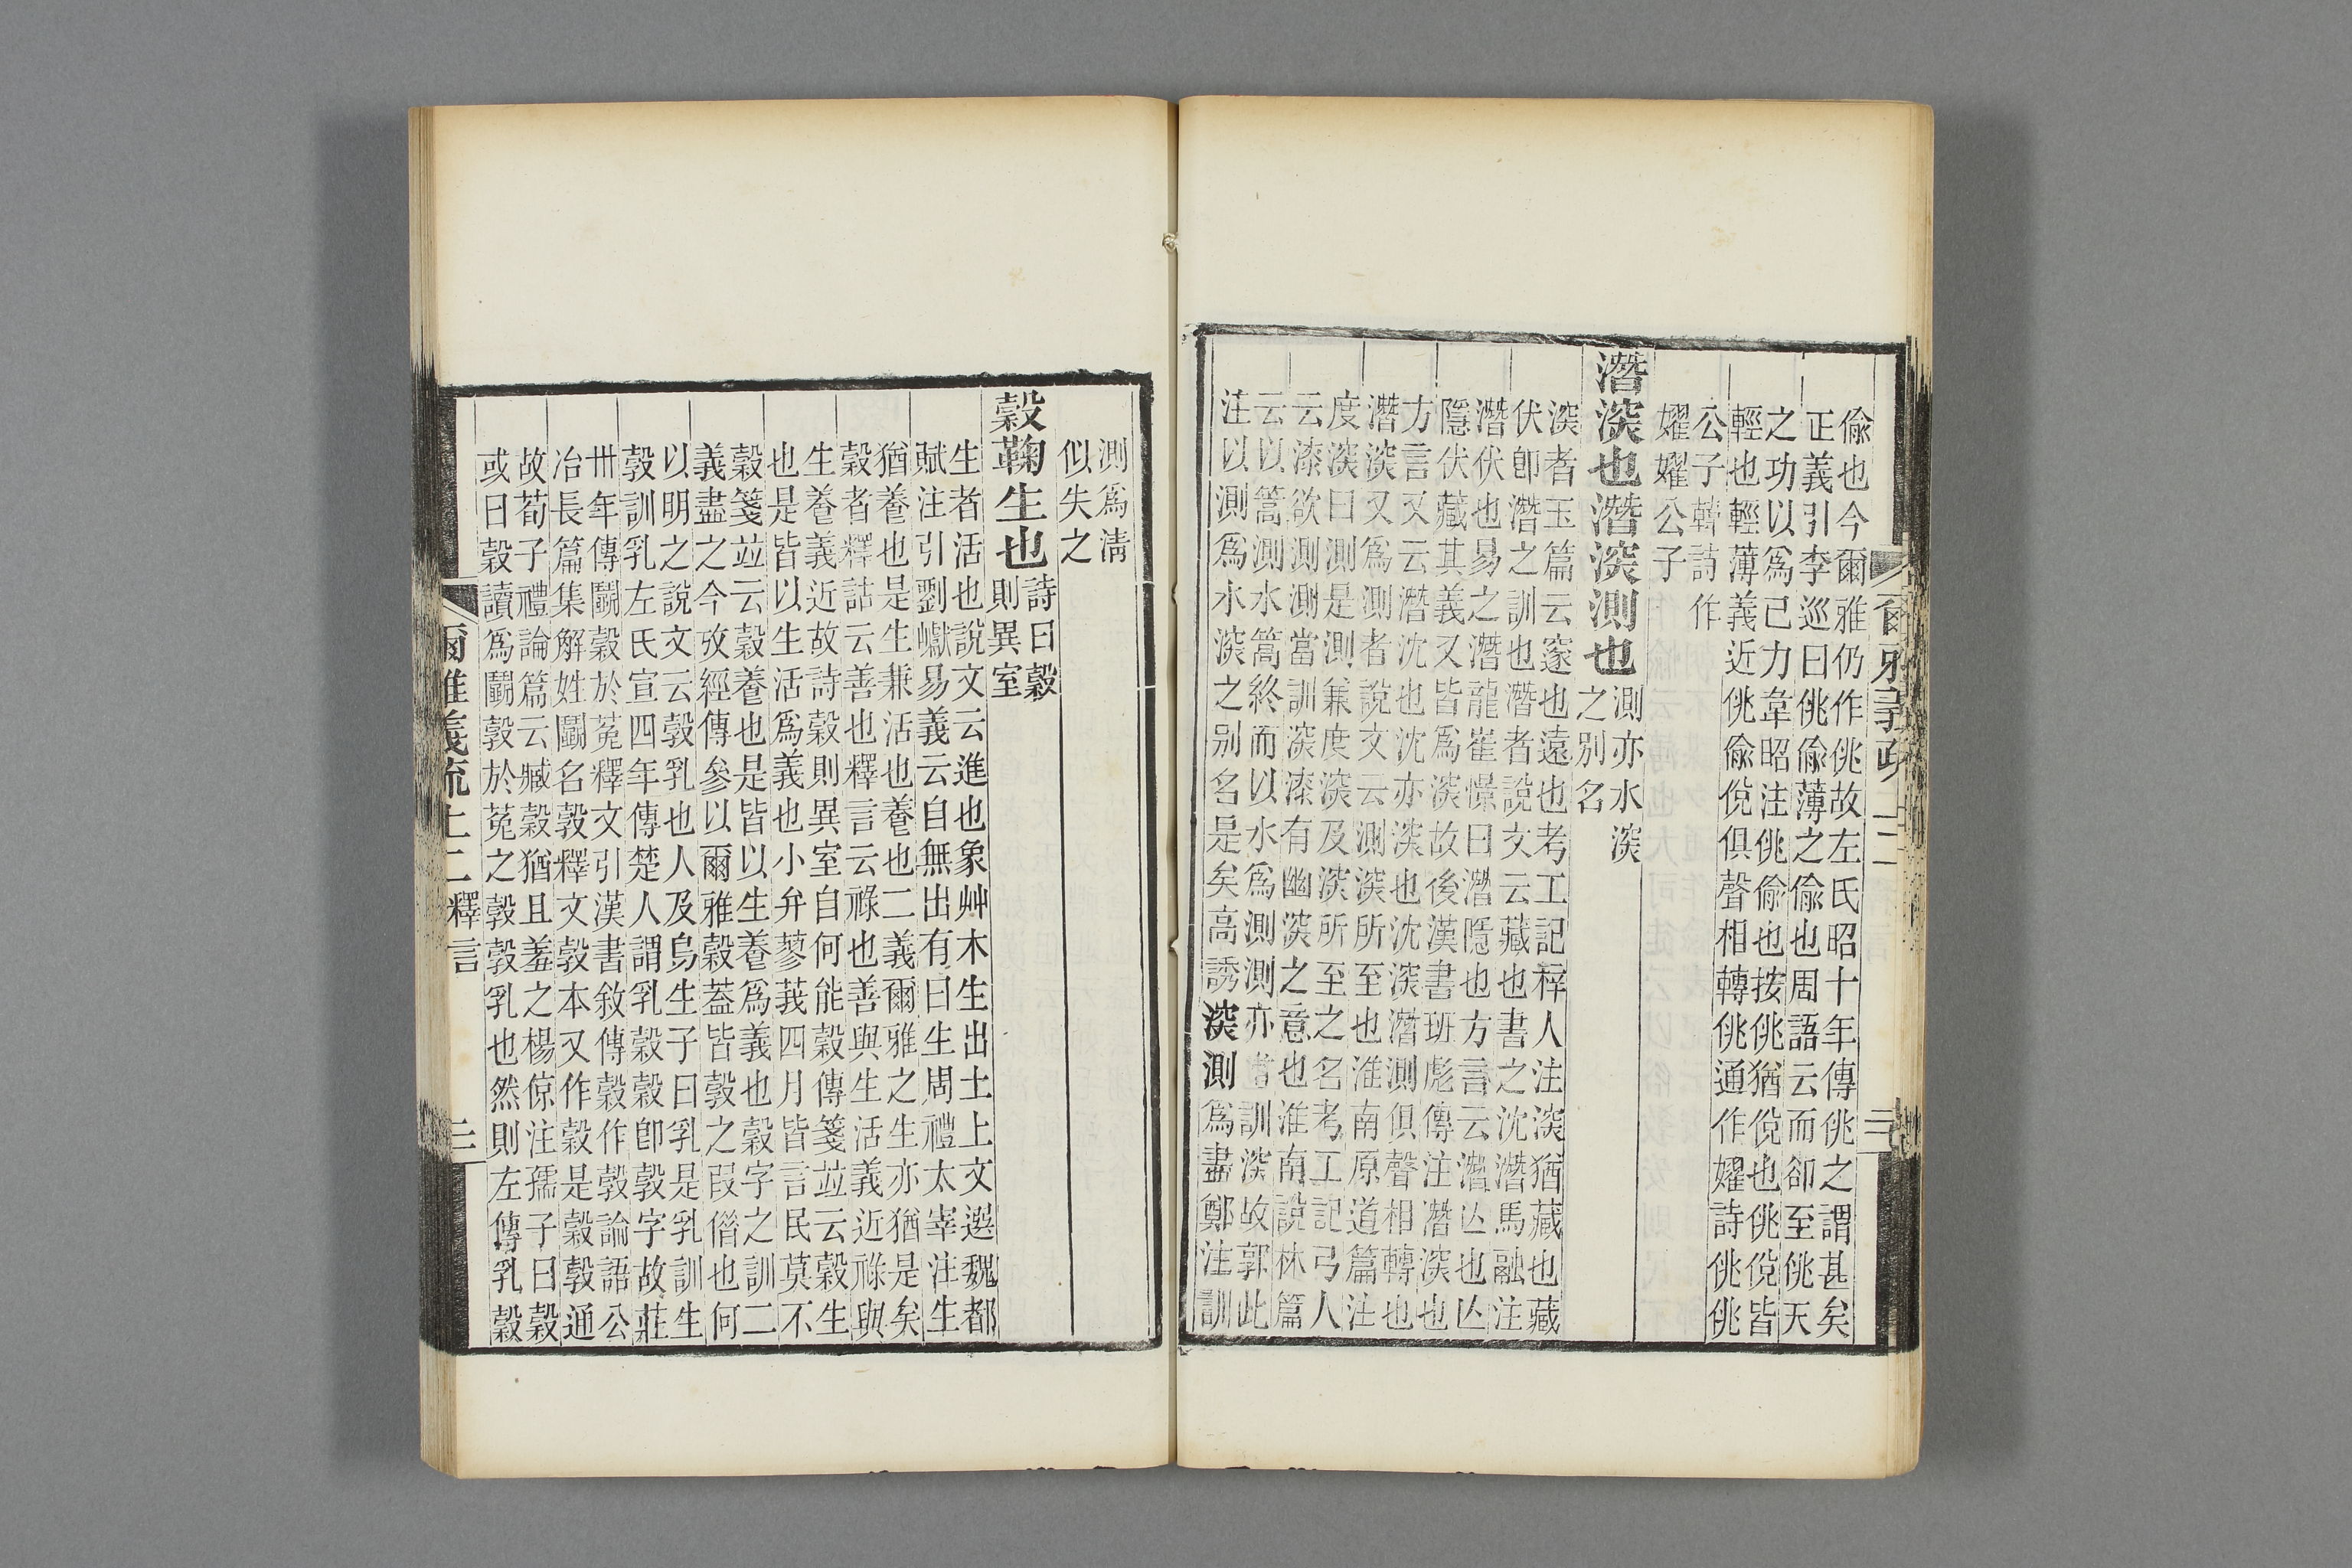 爾雅義疏 上二 二
偸也今爾雅仍作佻故左氏昭十年傳佻之謂甚矣
正義引李巡曰佻偸薄之偸也周語云而卻至佻天
之功以爲己力韋昭注佻偸也按佻猶侻也佻侻皆
輕也輕薄義近佻偸侻俱聲相轉佻通作嬥詩佻佻
公子韓詩作
嬥嬥公子
潛深也潛深測也
測亦水深
之別名
深者玉篇云邃也遠也考工記梓人注深猶藏也藏
伏卽潛之訓也潛者說文云藏也書之沈潛馬融注
潛伏也易之潛龍崔憬曰潛隱也方言云潛亾也亾
隱伏藏其義又皆爲深故後漢書班彪傳注潛深也
方言又云潛沈也沈亦深也沈深潛測俱聲相轉也
潛深又爲測者說文云測深所至也淮南原道篇注
度深曰測是測兼度深及深所至之名考工記弓人
云漆欲測測當訓深漆有幽深之意也淮南說林篇
云以篙測水篙終而以水爲測測亦訓深故郭此
注以測爲水深之別名是矣高誘深測爲盡鄭注訓
測爲淸
似失之
穀鞠生也
詩曰穀
則異室
生者活也說文云進也象艸木生出土上文選魏都
賦注引劉瓛易義云自無出有曰生周禮太宰注生
猶養也是生兼活也養也二義爾雅之生亦猶是矣
穀者釋詁云善也釋言云祿也善與生活義近祿與
生養義近故詩穀則異室自何能穀傳箋竝云穀生
也是皆以生活爲義也小弁蓼莪四月皆言民莫不
穀箋竝云穀養也是皆以生養爲義也穀字之訓二
義盡之今攷經傳參以爾雅穀蓋皆㝅之叚借也何
以明之說文云㝅乳也人及鳥生子曰乳是乳訓生
㝅訓乳左氏宣四年傳楚人謂乳穀穀卽㝅字故莊
卅年傳鬭穀於菟釋文引漢書敘傳穀作㝅論語公
冶長篇集解姓鬭名㝅釋文㝅本又作穀是穀㝅通
故荀子禮論篇云臧穀猶且羞之楊倞注孺子曰穀
或曰穀讀爲鬭㝅於菟之㝅㝅乳也然則左傳乳穀
爾雅義疏 上二 釋言 三